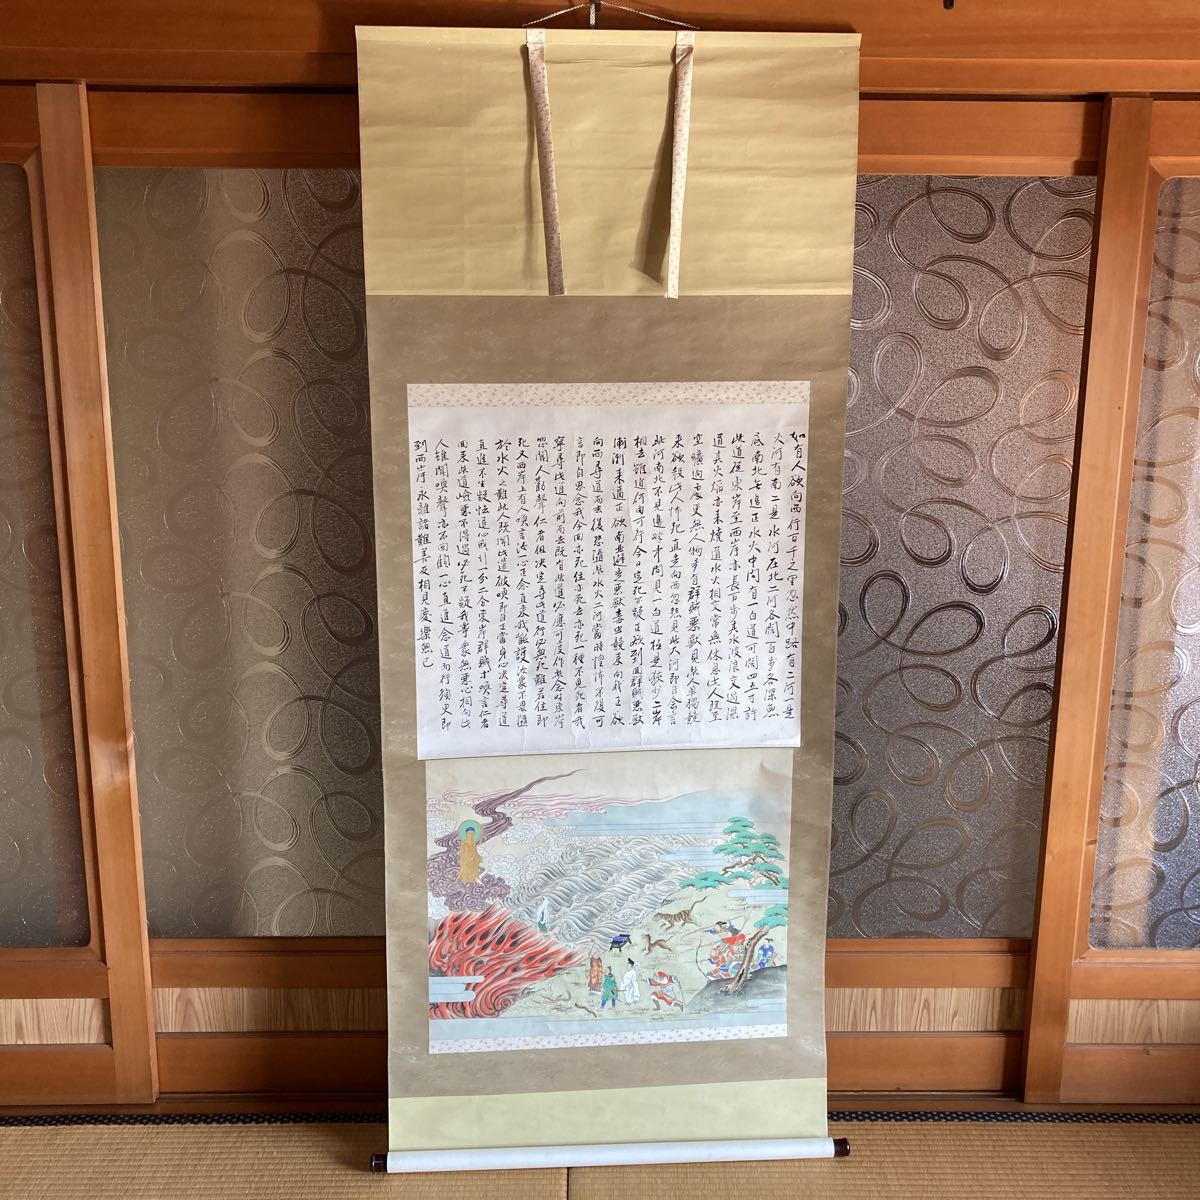 如有人欲向西行百千之里忽然中路有二河一是
火河有南二是水河在北二河各闊百歩各深無
底南北無辺正水火中間有一白道可闊四五寸許
此道従東岸至西岸亦長百歩其水波浪交過湿
道其火焔亦来焼道水火相交常無休息此人既至
空曠迥處更無人物多有群賊悪獣見此人単獨競
来欲殺此人怖死直走向西忽然見此大河即自念言
此河南北不見邊畔中間見一白道極是狭少二岸
相去雖近何由可行今日定死不疑正欲到回群賊悪獣
漸漸来逼正欲南北避走悪獣毒虫競来向我正欲
向西尋道而去復恐堕此水火二河當時惶怖不復可
言即自思念我今回亦死住亦死去亦死一種不免死者我
寧尋此道向前而去既有此道必應可度作此念時東岸
忽聞人勸聲仁者但決定尋此道行必無死難若住即
死又西岸上有人喚言汝一心正念直来我能護汝衆不畏堕
於水火之難此人既聞此遣彼喚即自正當身心決定尋道
直進不生疑怯退心或行一分二分東岸群賊等喚言仁者
回来此道嶮悪不得過必死不疑我等衆無悪心相向此
人雖聞喚聲亦不回顧一心直進念道而行須臾即
到西岸永離諸難善友相見慶樂無已